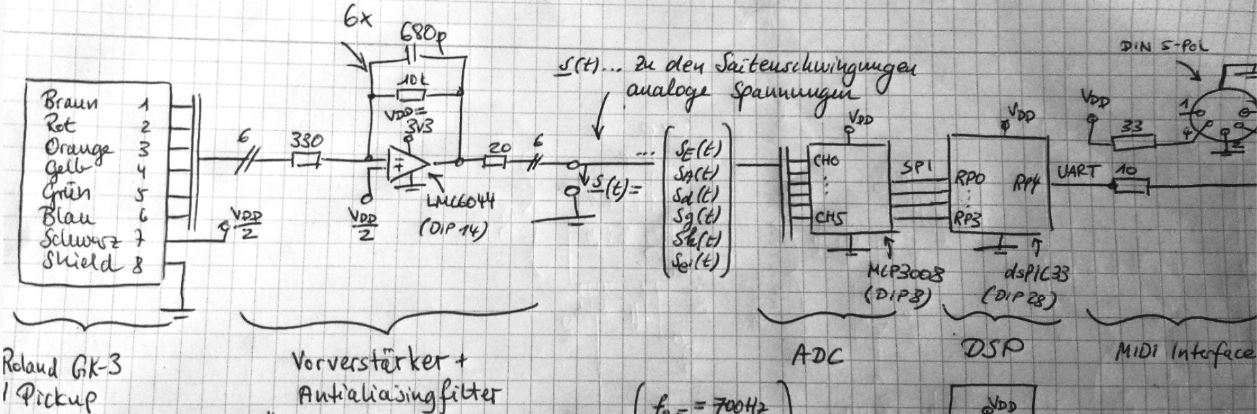 6x
680p
10k
VDD=
3V3
s(t)... zu den Saitenschwingungen
analoge Spannungen
DIN 5-POL
Braun 1
Rot 2
Orange 3
Gelb 4
Grün 5
Blau 6
Schwarz 7
Shield 8
VDD/2
6
330
VDD/2
20
6
LMC6044
(DIP14)
s(t)=
...
SE(t)
SA(t)
Sd(t)
Sg(t)
Sh(t)
Sei(t)
VDD
CH0
CH5
SPI
VDD
RP0
RP3
RP4
UART
VDD
33
10
1
4
2
MCP3008
(DIP8)
dsPIC33
(DIP28)
Roland GK-3
Pickup
Vorverstärker +
Antialiasingfilter
ADC
DSP
MIDI Interface
= 700Hz
VDD